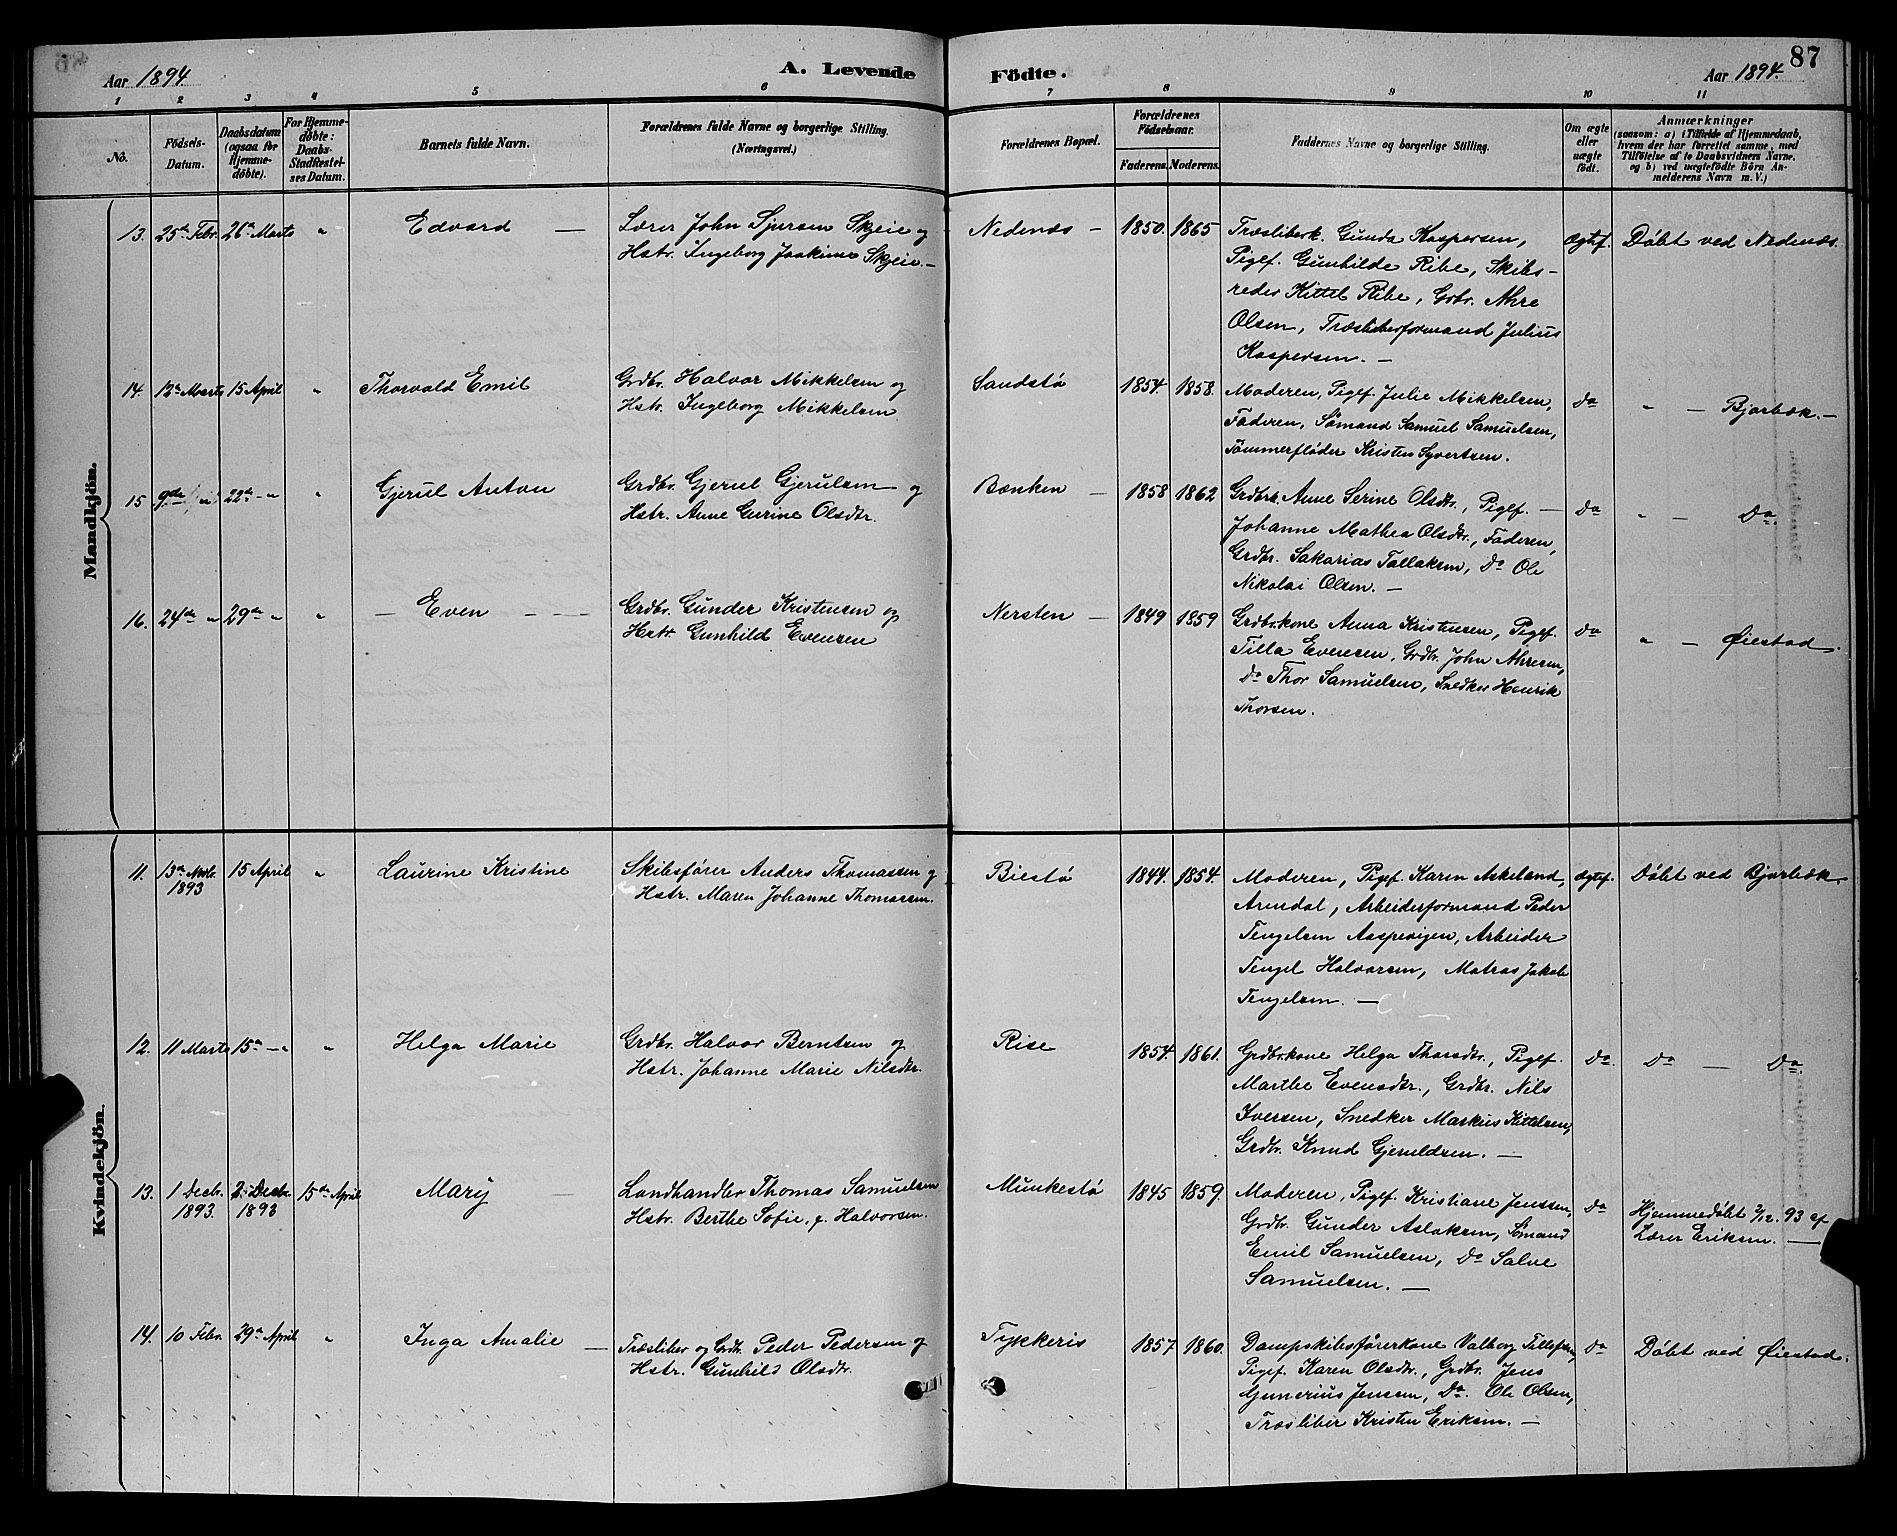 87
Aar 1894. A. Levende Födte. Aar 1894.
1 2 3 4 5 6 7 8 9 10 11
No.
Födsels-Datum.
Daabsdatum (ogsaa for Hjemme-döbte).
For Hjemme-döbte: Daabs-Stadfestel-ses Datum.
Barnets fulde Navn.
Forældrenes fulde Navne og borgerlige Stilling.
(Næringsvei.)
Forældrenes Bopæl.
Forældrenes Födselsaar.
Faderens. Moderens.
Faddernes Navne og borgerlige Stilling.
Om ægte eller uægte födt.
Anmærkninger
(saasom: a) i Tilfælde af Hjemmedaab,
hvem der har forrettet samme, med
Tilföielse af to Daabsvidners Navne,
og b) ved uægtefödte Börn An-
melderens Navn m. V.)
Mandkjön.
13. 25de Febr. 26de Marts " Edvard —
Lærer John Sjursen Skjeie og
Hstr. Ingeborg Joakime Skjeie. —
Nedenæs — 1850. 1865
Træsliberk. Gunda Kaspersen,
Pigef. Gunhilde Ribe, Skibs-
reder Kittel Ribe, Grbr. Ahre
Olsen, Træsliberformand Julius
Kaspersen. —
Ægtef. Döbt ved Nedenæs.
14. 12te Marts 15 April " Thorvald Emil
Grdbr. Halvor Mikkelsen og
Hstr. Ingeborg Mikkelsen
Sandstø 1854. 1858.
Moderen, Pigef. Julie Mikkelsen,
Faderen, Sømand Samuel Samuelsen,
Tømmerfløder Kristen Syvertsen.
do " — Bjorbæk. —
15 9de " 22de — " " Gjerul Anton
Grdbr. Gjerul Gjerulsen og
Hstr. Anne Gurine Olsdtr.
Bænken — 1858 1862
Grdbrk. Anne Serine Olsdtr., Pigef. —
Johanne Mathea Olsdtr., Faderen,
Grdbr. Sakarias Tallaksen, do Ole
Nikolai Olsen. —
do " — Do.
16. 24de " 29de " " — Even — —
Grdbr. Gunder Kristensen og
Hstr. Gunhild Evensen
Nersten — 1849 1859
Grdbrkone Anna Kristensen, Pigef.
Tilla Evensen, Grdbr. John Ahresen,
do Thor Samuelsen, Snedker Henrik
Thorsen.
do " — Øiestad.
Kvindekjön.
11. 13de Novb. 1893 15 April " Laurine Kristine
Skibsfører Anders Thomassen og
Hstr. Maren Johanne Thomassen.
Biestø 1844. 1854.
Moderen, Pigef. Karen Askeland,
Arendal, Arbeiderformand Peder
Tengelsen Aaspevigen, Arbeider
Tengel Halvorsen, Matros Jakob
Tengelsen. —
Ægtef. Döbt ved Bjorbæk.
12. 11 Marts 15de — " " Helga Marie
Grdbr. Halvor Berntsen og
Hstr. Johanne Marie Nilsdtr.
Rise 1854. 1861.
Grdbrkone Helga Thorsdtr., Pigef.
Marthe Evensdtr., Grdbr. Nils
Iversen, Snedker Markus Kittelsen,
Grdbr. Knud Gjeruldsen. —
do. Do — Do.
13. 1 Decb. 1893. 2. Decbr 1893 15de April Mary —
Landhandler Thomas Samuelsen
Hstr. Berthe Sofie, f. Halvorsen.
Munkestø 1845 1859.
Moderen, Pigef. Kristiane Jenssen,
Grdbr. Gunder Aslaksen, Sømand
Emil Samuelsen, do Salve
Samuelsen. —
do Hjemmedøbt 2/12. 93 af
Lærer Eriksen. —
14. 10 Febr. 29de April " Inga Amalie —
Træsliber og Grdbr. Peder Pedersen og
Hstr. Gunhild Olsdtr.
Tykkeris 1857. 1860.
Dampskibsførerkone Valborg Tellefsen,
Pigef. Karen Olsdtr., Grdbr. Jens
Gunerius Jensen, Do. Ole Olsen,
Træsliber Kristen Eriksen. —
do Döbt ved Øiestad.